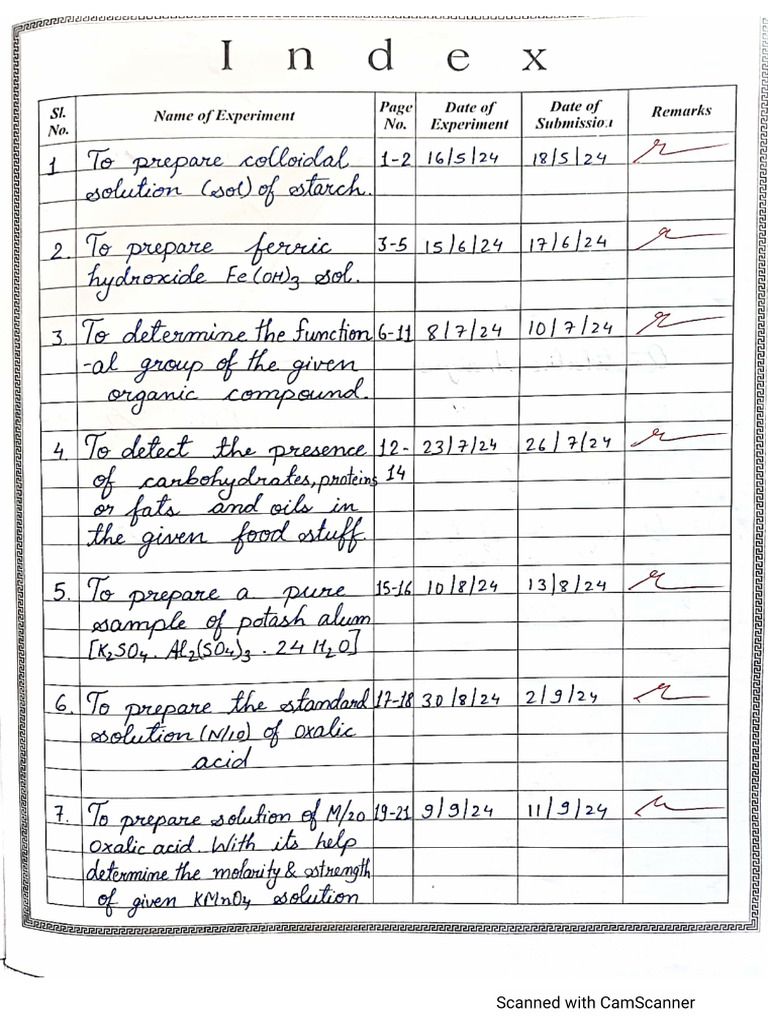 Index
Sl. No. Name of Experiment Page No. Date of Experiment Date of Submission Remarks
1 To prepare colloidal 1-2 16/5/24 18/5/24
solution (sol) of starch.
2. To prepare ferric 3-5 15/6/24 17/6/24
hydroxide Fe(OH)3 sol.
3. To determine the function 6-11 8/7/24 10/7/24
-al group of the given
organic compound.
4. To detect the presence 12- 23/7/24 26/7/24
of carbohydrates, proteins 14
or fats and oils in
the given food stuff.
5. To prepare a pure 15-16 10/8/24 13/8/24
sample of potash alum
[K2SO4. Al2(SO4)3 . 24 H2O]
6. To prepare the standard 17-18 30/8/24 2/9/24
solution (N/10) of oxalic
acid
7. To prepare solution of M/20 19-21 9/9/24 11/9/24
oxalic acid. With its help
determine the molarity & strength
of given KMnO4 solution
Scanned with CamScanner